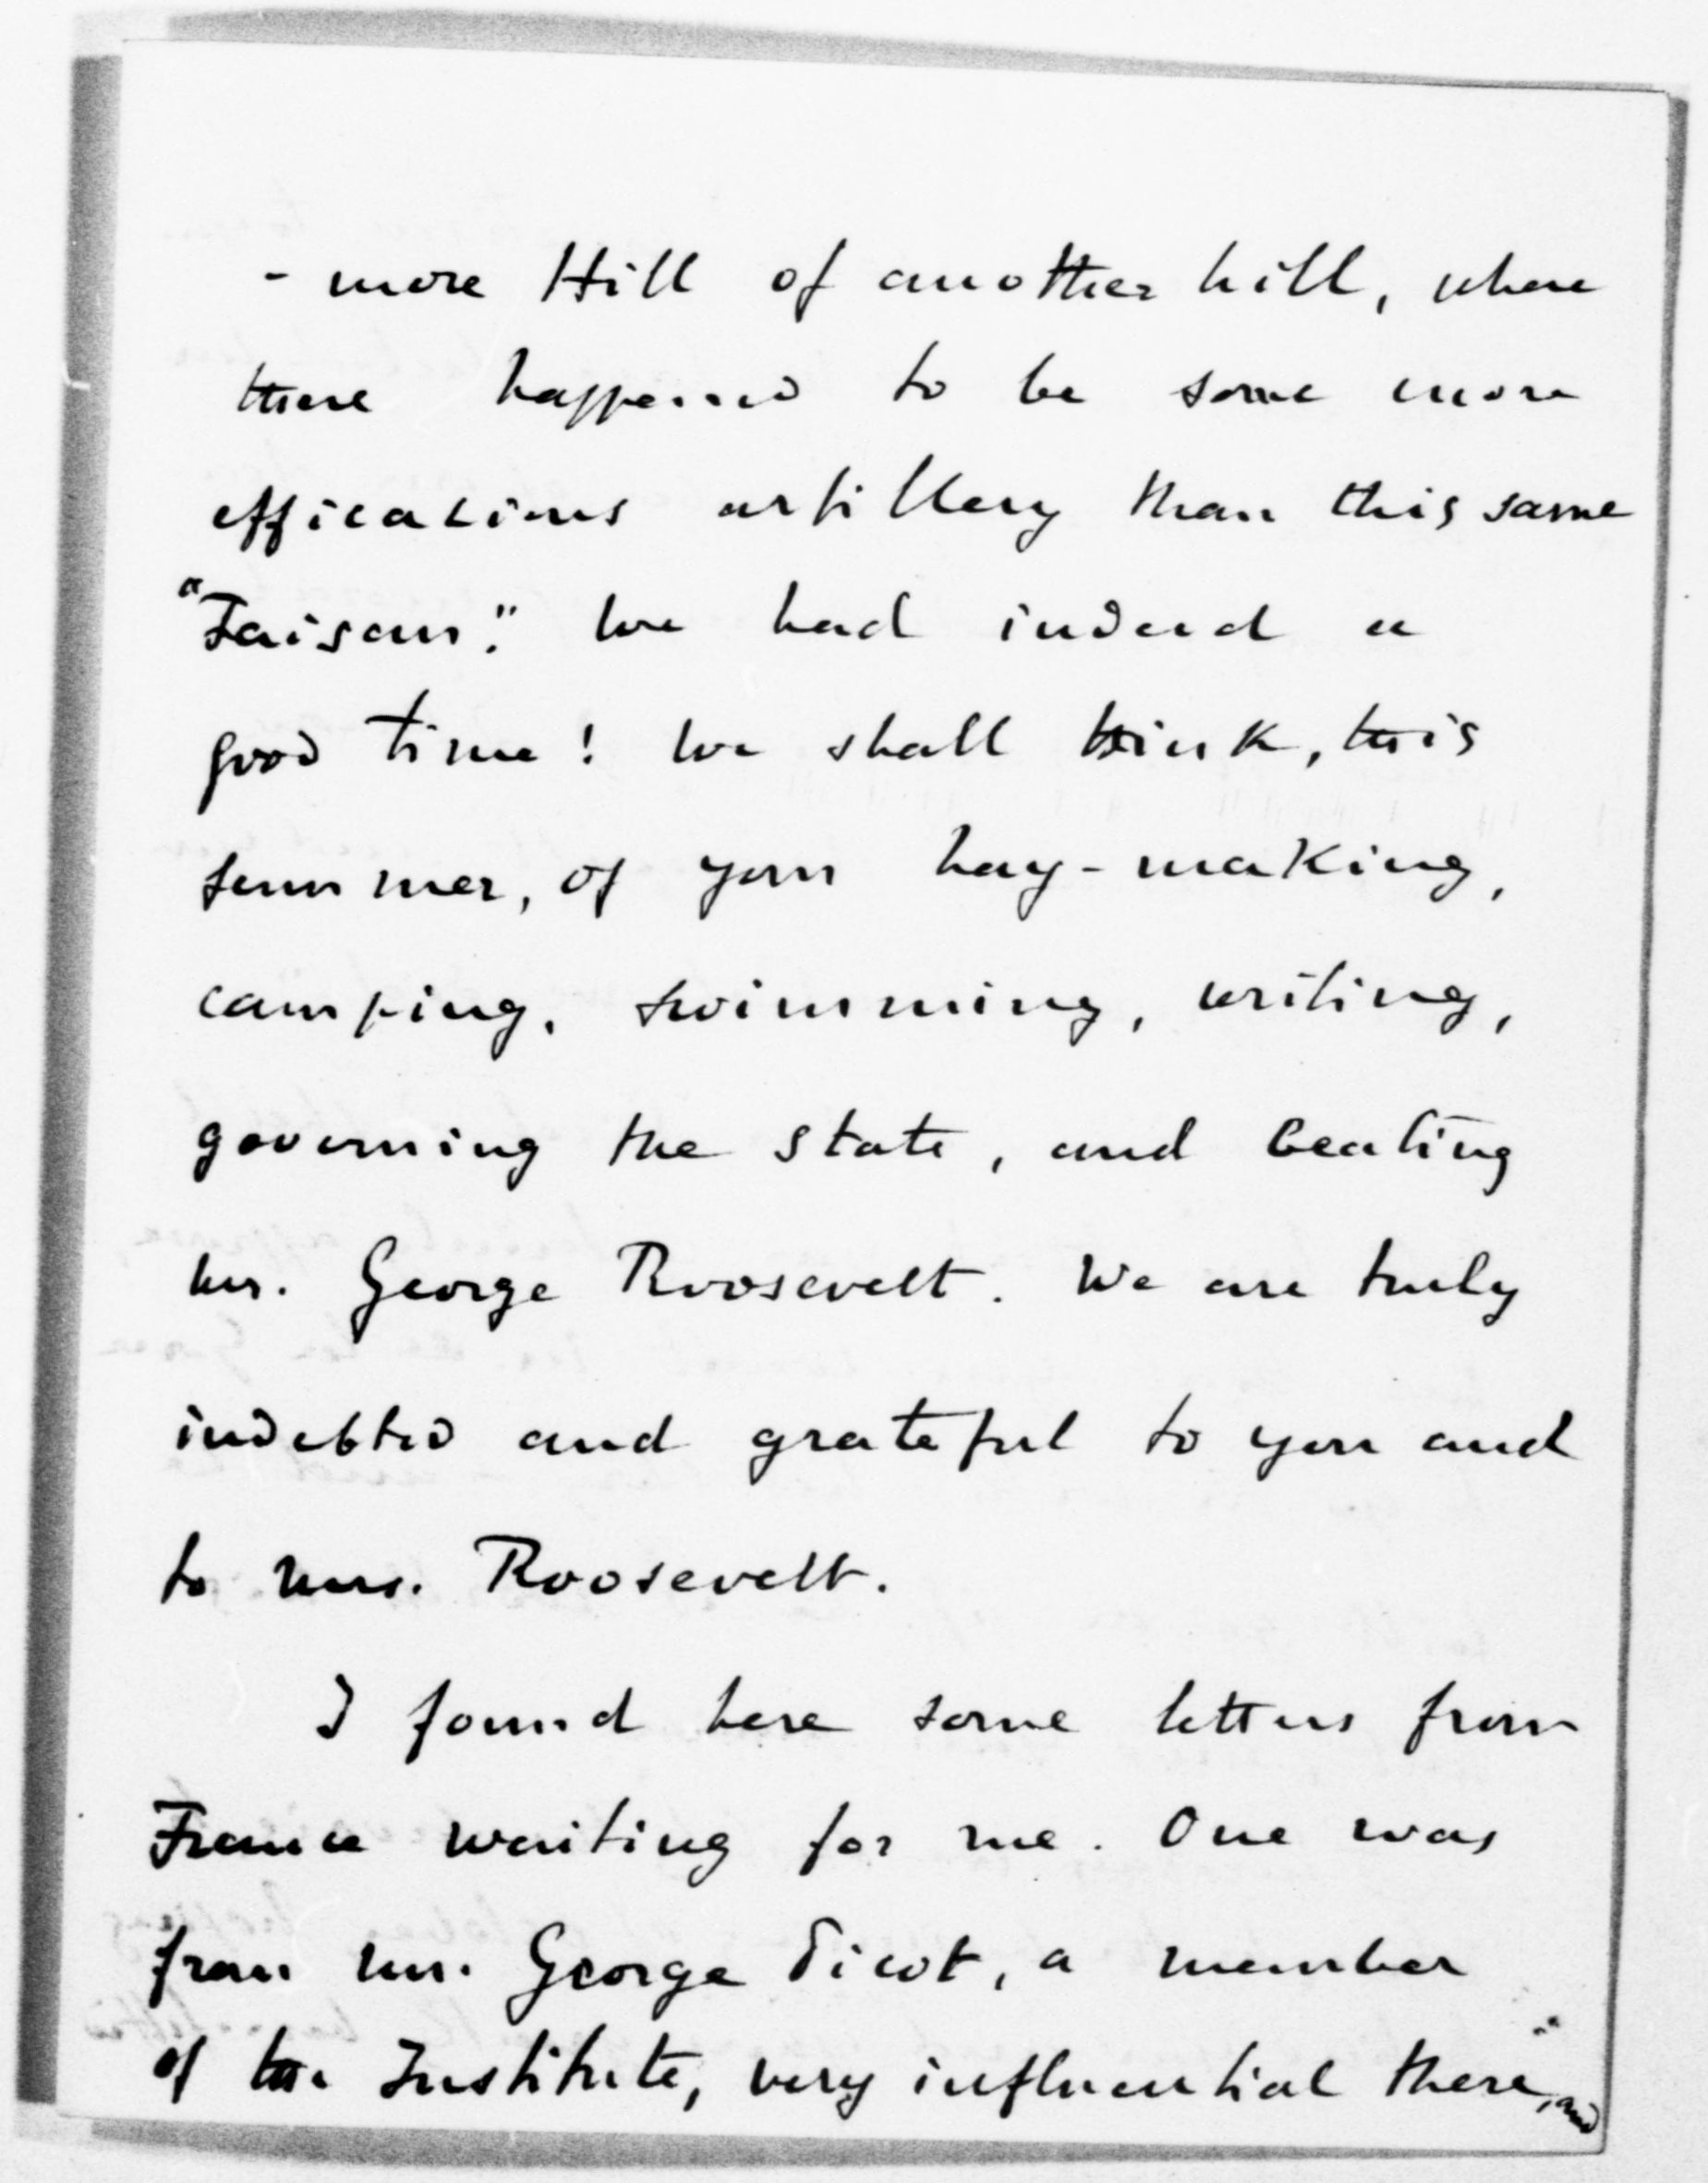 - more Hill of another hill, where
there happened to be some more
efficacious artillery than this same
"Faisan". We had indeed a
good time! We shall think, this
summer, of your hay-making,
camping, swimming, writing,
governing the state, and beating
Mr. George Roosevelt. We are truly
indebted and grateful to you and
to Mrs. Roosevelt.
I found here some letters from
France waiting for me. One was
from Mr. George Picot, a member
of the Institute, very influential there, and